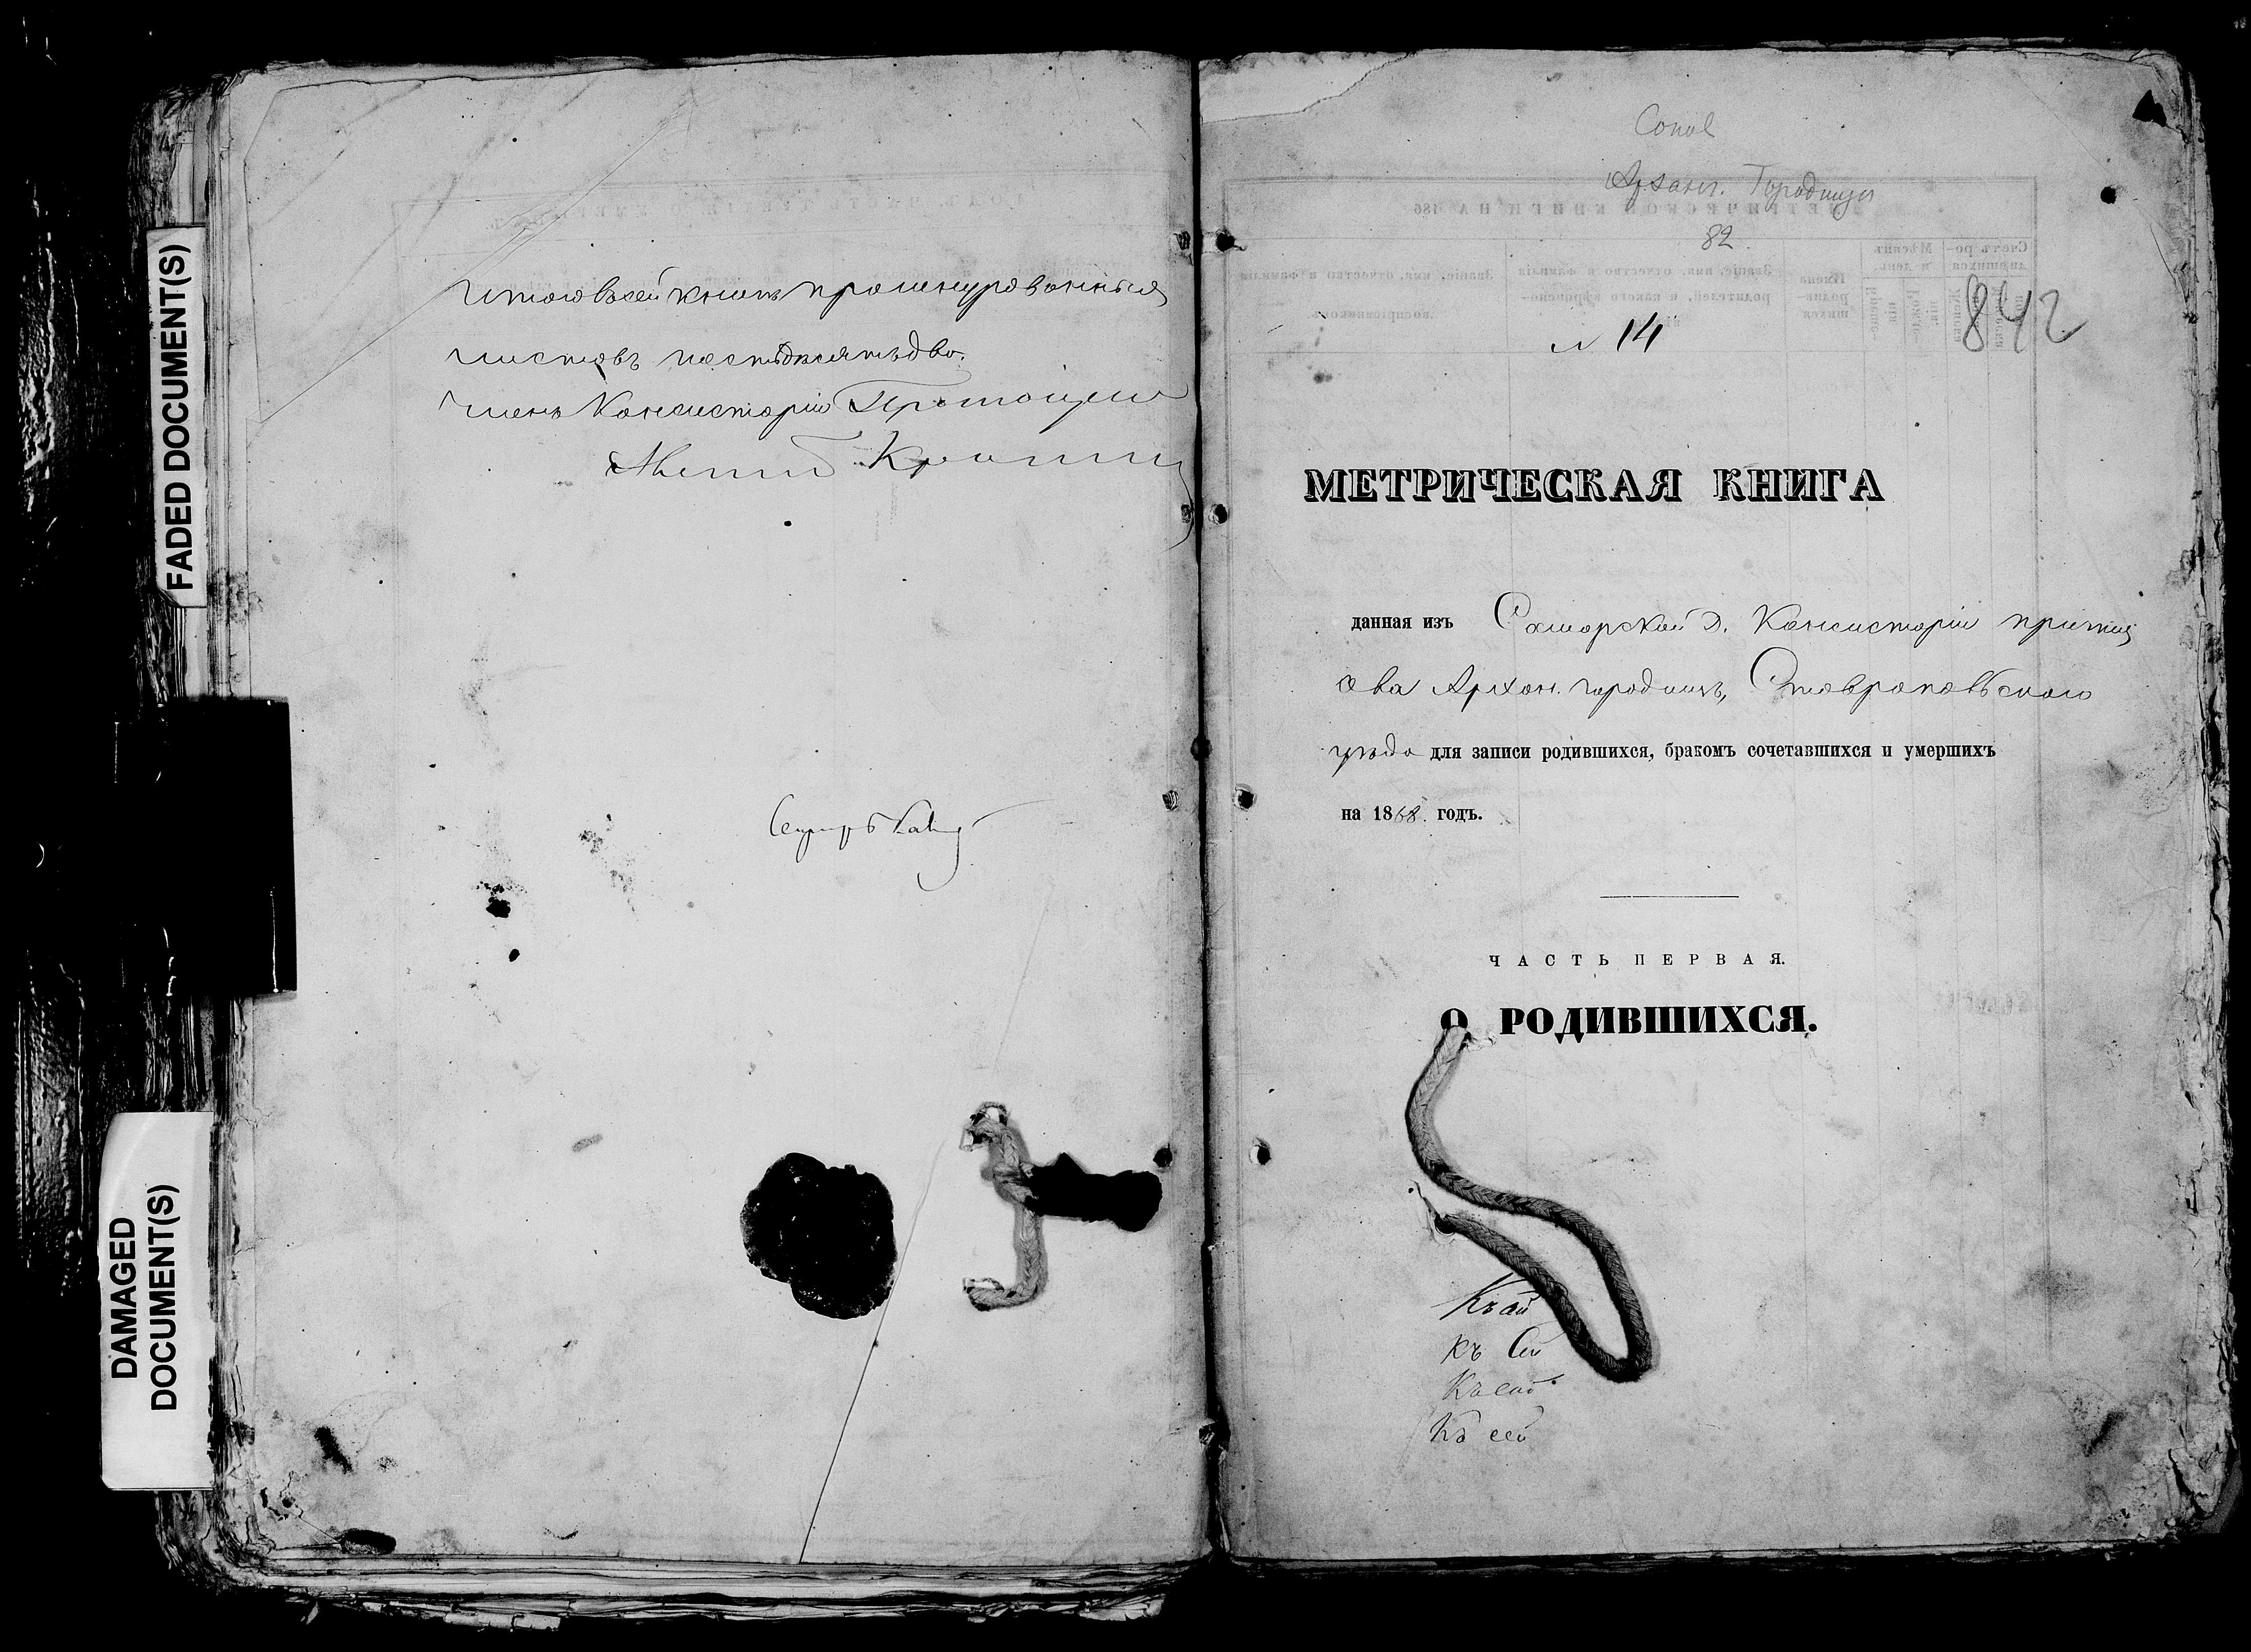 FADED DOCUMENT(S)
DAMAGED
DOCUMENT(S)
Итого въ сей книгѣ прошнурованныхъ
листовъ шестьдесятъ два.
Членъ Консисторіи Протоіерей
Секретарь
Арханг. Городищи
82
842
№ 14
МЕТРИЧЕСКАЯ КНИГА
данная изъ Самарской Д. Консисторіи причту
села Архан. Городищъ, Ставропольскаго
уѣзда для записи родившихся, бракомъ сочетавшихся и умершихъ
на 1868. годъ.
ЧАСТЬ ПЕРВАЯ.
О РОДИВШИХСЯ.
Къ сей
Къ сей
Къ сей
Къ сей